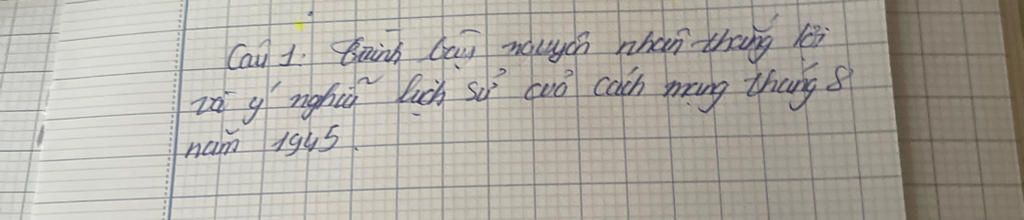 Câu 1: Trình bày nguyên nhân thắng lợi
và ý nghĩa lịch sử của cách mạng tháng 8
năm 1945.